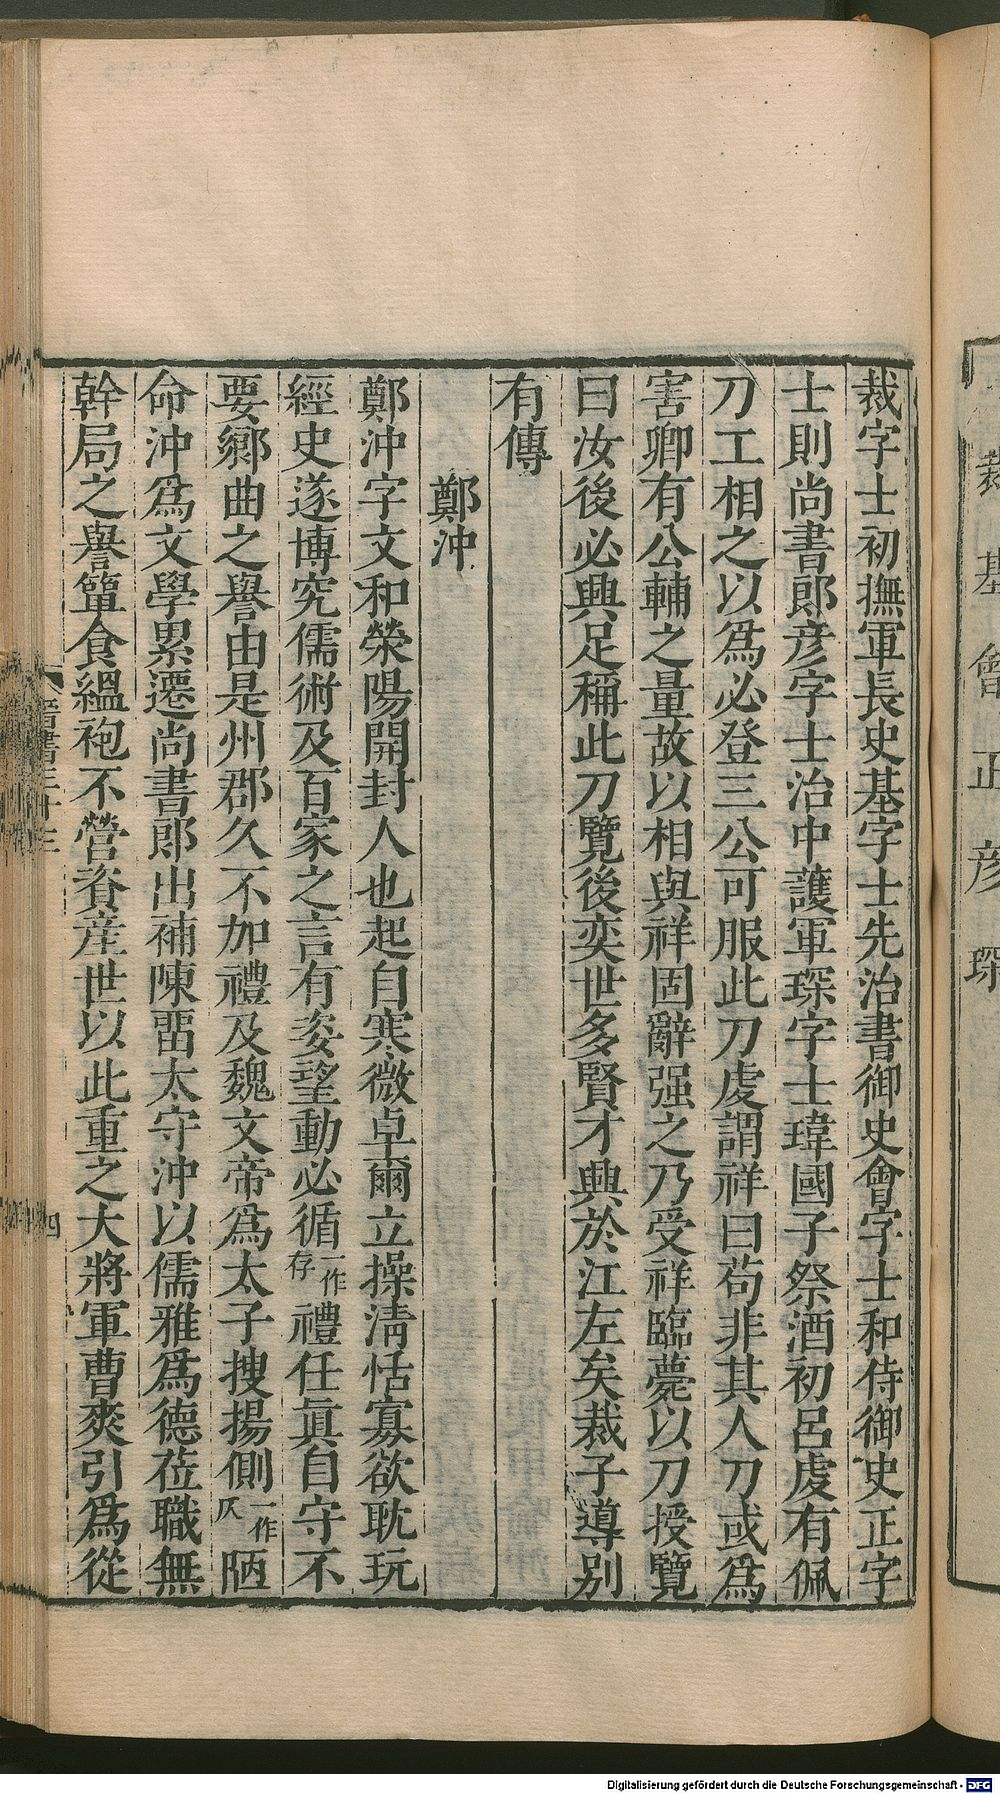 裁字士初撫軍長史基字士先治書御史會字士和侍御史正字
士則尚書郎彥字士治中護軍琛字士瑋國子祭酒初呂虔有佩
刀工相之以爲必登三公可服此刀虔謂祥曰苟非其人刀或爲
害卿有公輔之量故以相與祥固辭强之乃受祥臨薨以刀授覽
曰汝後必興足稱此刀覽後奕世多賢才興於江左矣裁子導別
有傳
鄭沖
鄭沖字文和滎陽開封人也起自寒微卓爾立操淸恬寡欲耽玩
經史遂博究儒術及百家之言有姿望動必循一作存禮任眞自守不
要鄉曲之譽由是州郡久不加禮及魏文帝爲太子搜揚側一作仄陋
命沖爲文學累遷尚書郎出補陳畱太守沖以儒雅爲德莅職無
幹局之譽簞食縕袍不營資産世以此重之大將軍曹爽引爲從
晉書三十三
四
裁 基 會 正 彥 琛
Digitalisierung gefördert durch die Deutsche Forschungsgemeinschaft - DFG